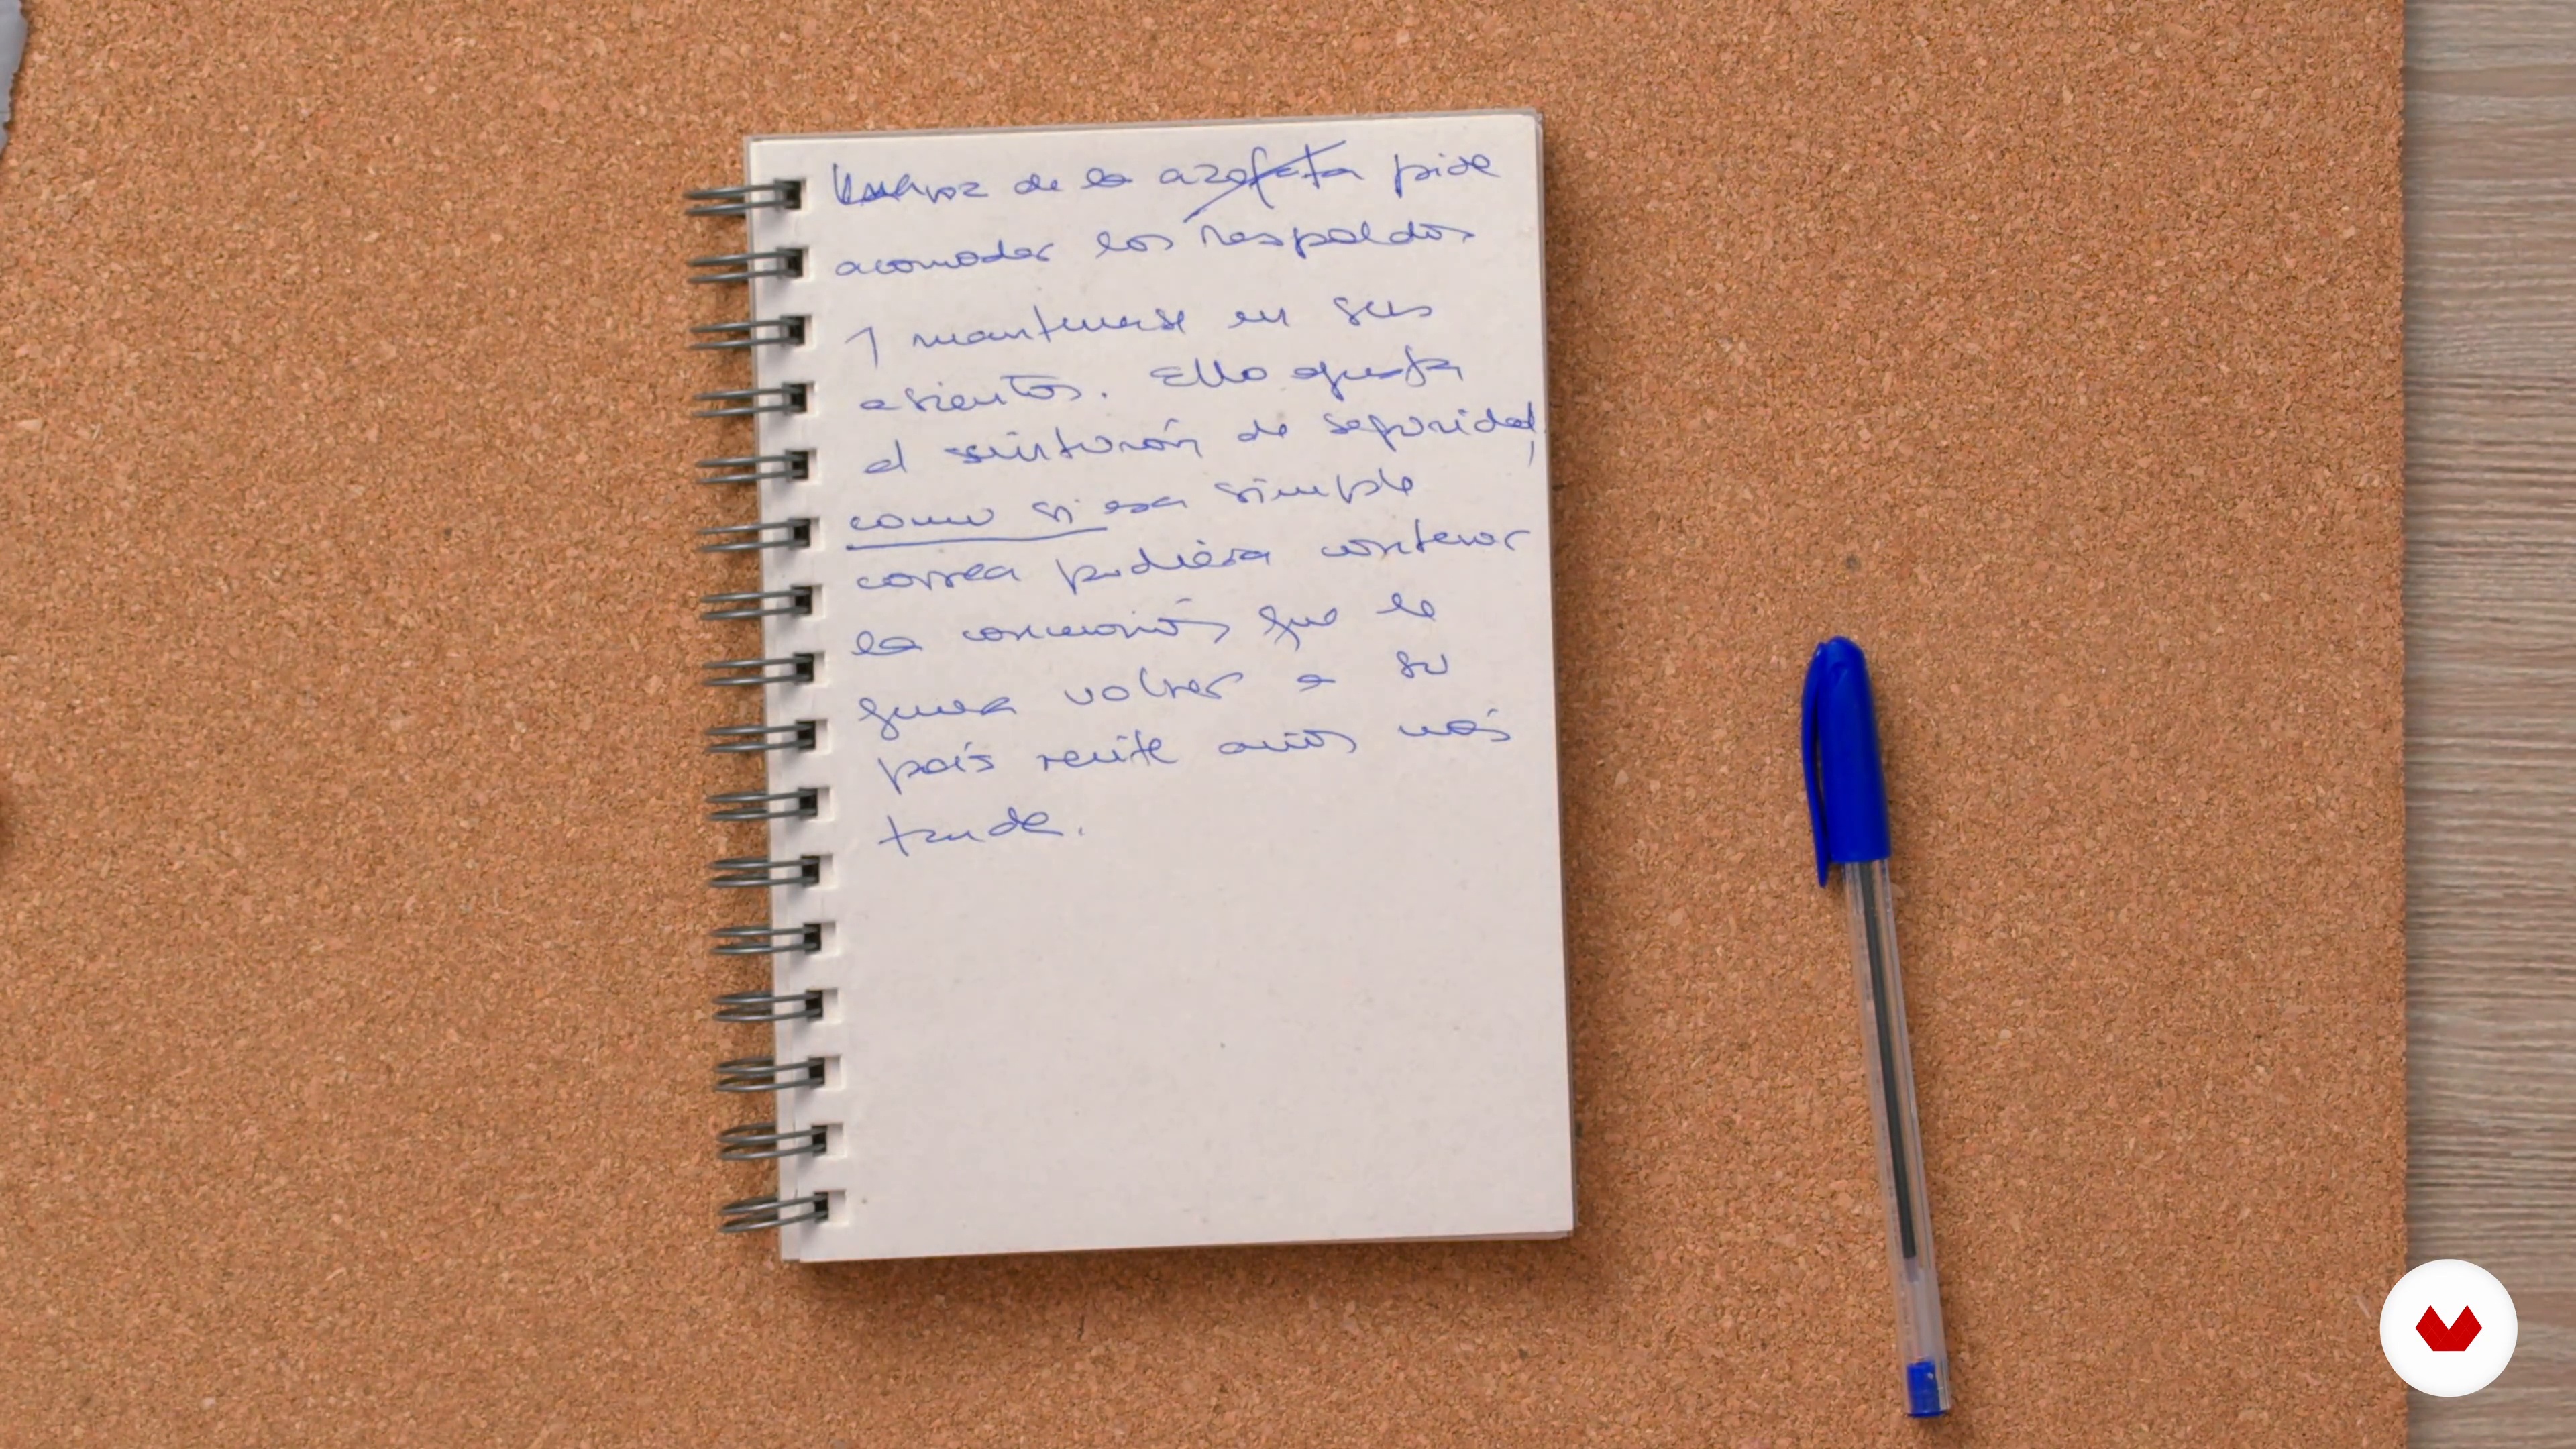 La voz de la azafata pide
acomodar los respaldos
y mantenerse en sus
asientos. Ella ajusta
el sinturón de seguridad,
como si esa simple
correa pudiera contener
la conmoción que le
genera volver a su
país veinte años más
tarde.